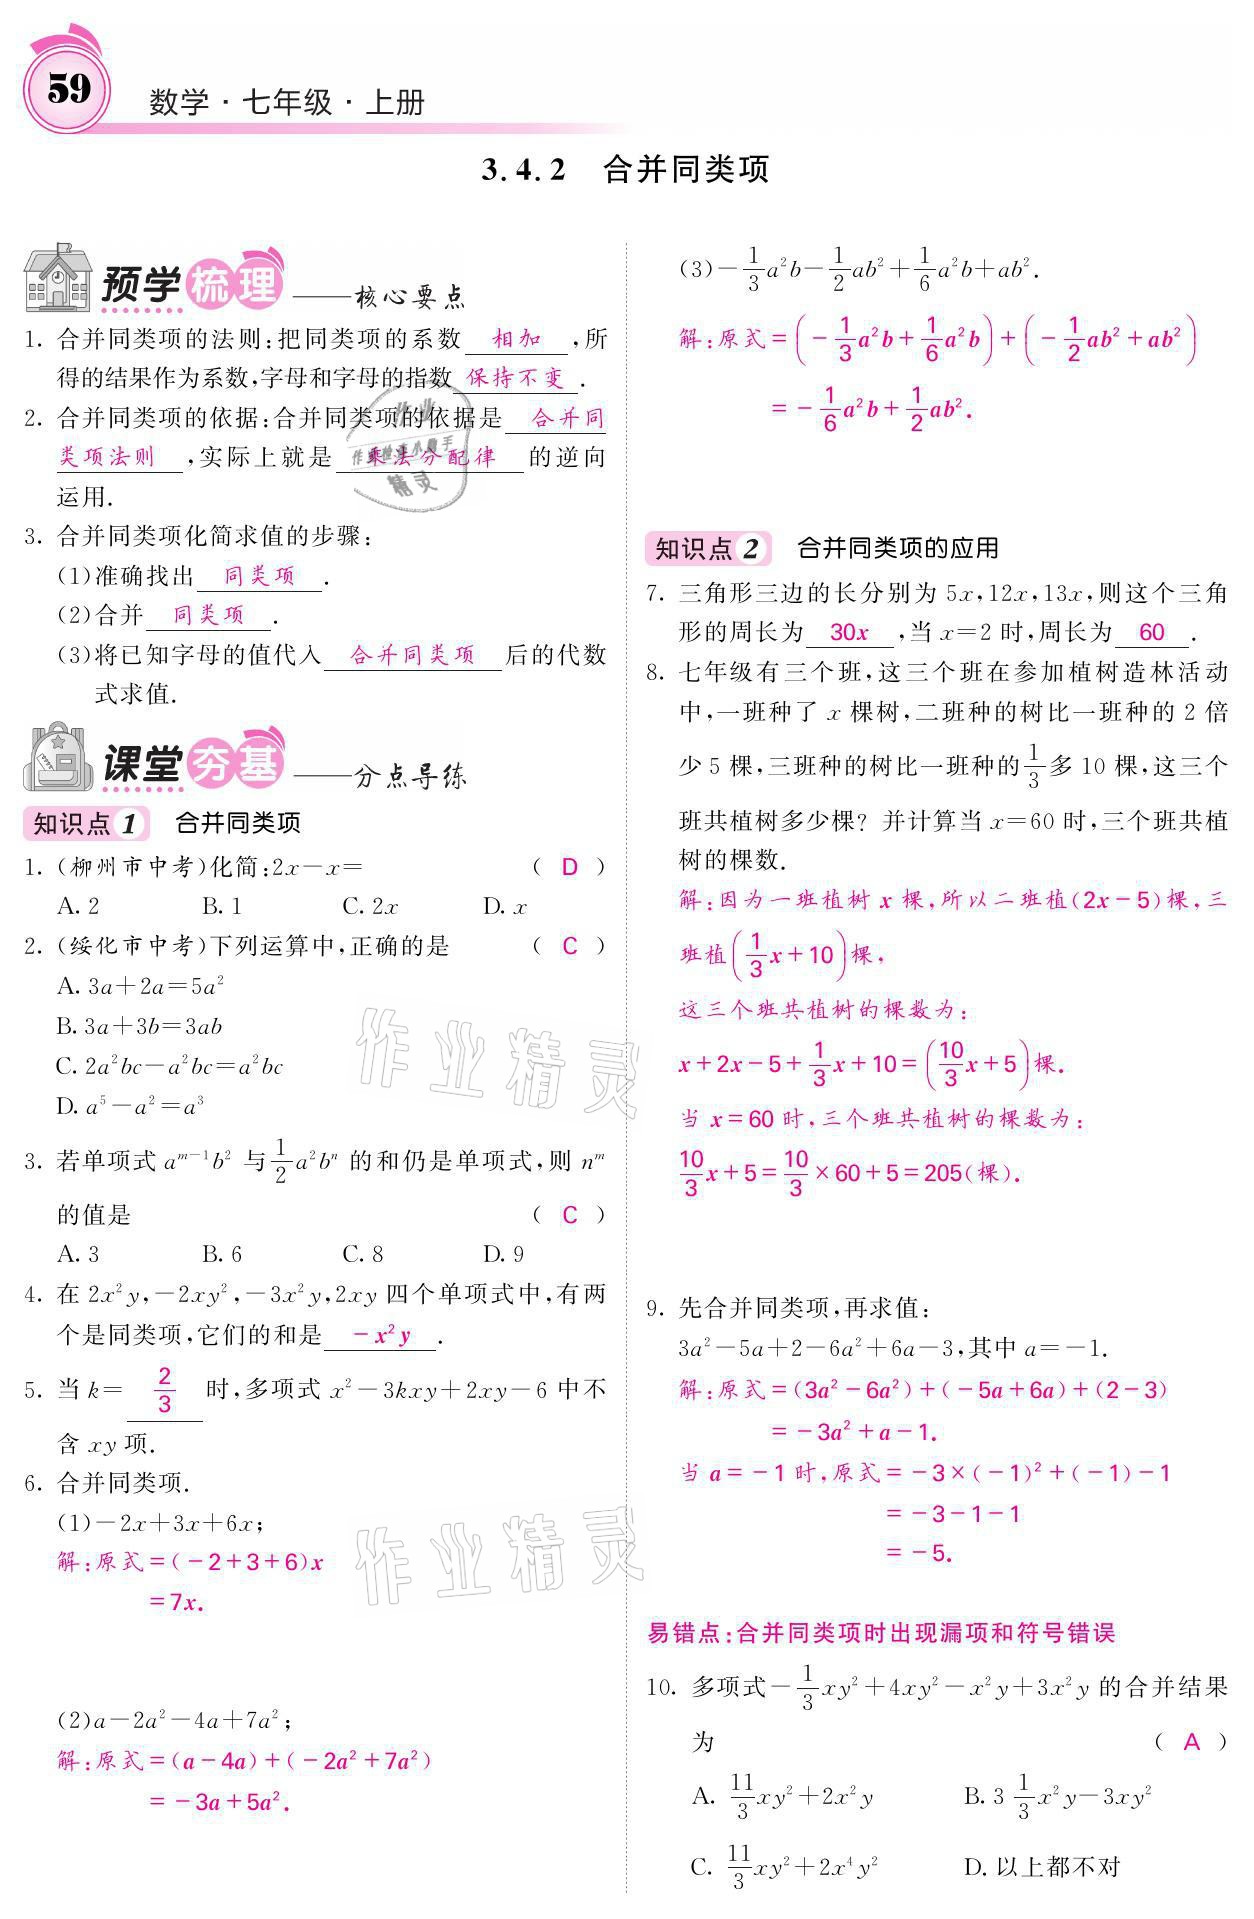 59
数学·七年级·上册
3.4.2 合并同类项
预学梳理——核心要点
1. 合并同类项的法则:把同类项的系数 相加 ,所
得的结果作为系数,字母和字母的指数 保持不变 .
2. 合并同类项的依据:合并同类项的依据是 合并同
类项法则 ,实际上就是 乘法分配律 的逆向
运用.
3. 合并同类项化简求值的步骤:
(1)准确找出 同类项 .
(2)合并 同类项 .
(3)将已知字母的值代入 合并同类项 后的代数
式求值.
课堂夯基——分点导练
知识点1 合并同类项
1. (柳州市中考)化简:2x-x= ( D )
A. 2 B. 1 C. 2x D. x
2. (绥化市中考)下列运算中,正确的是 ( C )
A. 3a+2a=5a²
B. 3a+3b=3ab
C. 2a²bc-a²bc=a²bc
D. a⁵-a²=a³
3. 若单项式 aᵐ⁻¹b² 与 1/2 a²bⁿ 的和仍是单项式,则 nᵐ
的值是 ( C )
A. 3 B. 6 C. 8 D. 9
4. 在 2x²y,-2xy²,-3x²y,2xy 四个单项式中,有两
个是同类项,它们的和是 -x²y .
5. 当 k= 2/3 时,多项式 x²-3kxy+2xy-6 中不
含 xy 项.
6. 合并同类项.
(1)-2x+3x+6x;
解:原式=(-2+3+6)x
=7x.
(2)a-2a²-4a+7a²;
解:原式=(a-4a)+(-2a²+7a²)
=-3a+5a².
(3)-1/3 a²b-1/2 ab²+1/6 a²b+ab².
解:原式=(-1/3 a²b+1/6 a²b)+(-1/2 ab²+ab²)
=-1/6 a²b+1/2 ab².
知识点2 合并同类项的应用
7. 三角形三边的长分别为 5x,12x,13x,则这个三角
形的周长为 30x ,当 x=2 时,周长为 60 .
8. 七年级有三个班,这三个班在参加植树造林活动
中,一班种了 x 棵树,二班种的树比一班种的 2 倍
少 5 棵,三班种的树比一班种的 1/3 多 10 棵,这三个
班共植树多少棵? 并计算当 x=60 时,三个班共植
树的棵数.
解:因为一班植树 x 棵,所以二班植(2x-5)棵,三
班植(1/3 x+10)棵,
这三个班共植树的棵数为:
x+2x-5+1/3 x+10=(10/3 x+5)棵.
当 x=60 时,三个班共植树的棵数为:
10/3 x+5=10/3×60+5=205(棵).
9. 先合并同类项,再求值:
3a²-5a+2-6a²+6a-3,其中 a=-1.
解:原式=(3a²-6a²)+(-5a+6a)+(2-3)
=-3a²+a-1.
当 a=-1 时,原式=-3×(-1)²+(-1)-1
=-3-1-1
=-5.
易错点:合并同类项时出现漏项和符号错误
10. 多项式-1/3 xy²+4xy²-x²y+3x²y 的合并结果
为 ( A )
A. 11/3 xy²+2x²y B. 3 1/3 x²y-3xy²
C. 11/3 xy²+2x⁴y² D. 以上都不对
作业
作业检查小助手
精灵
作业精灵
作业精灵